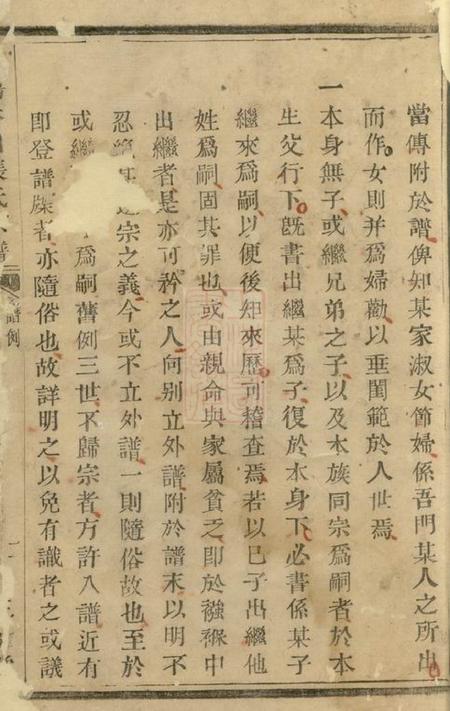 當傳附於譜俾知某家淑女節婦係吾門某人之所出
而作女則并爲婦勸以垂閨範於人世焉
一本身無子或繼兄弟之子以及本族同宗爲嗣者於本
生父行下既書出繼某爲子復於本身下必書係某子
繼來爲嗣以便後知來歷可稽查焉若以己子出繼他
姓爲嗣固其罪也或由親命與家屬貧乏即於襁褓中
出繼者是亦可矜之人何别立外譜附於譜末以明不
忍宗之義今或不立外譜一則隨俗故也至於
或繼爲嗣舊例三世不歸宗者方許入譜近有
即登譜牒者亦隨俗也故詳明之以免有識者之或議
氏譜
譜例